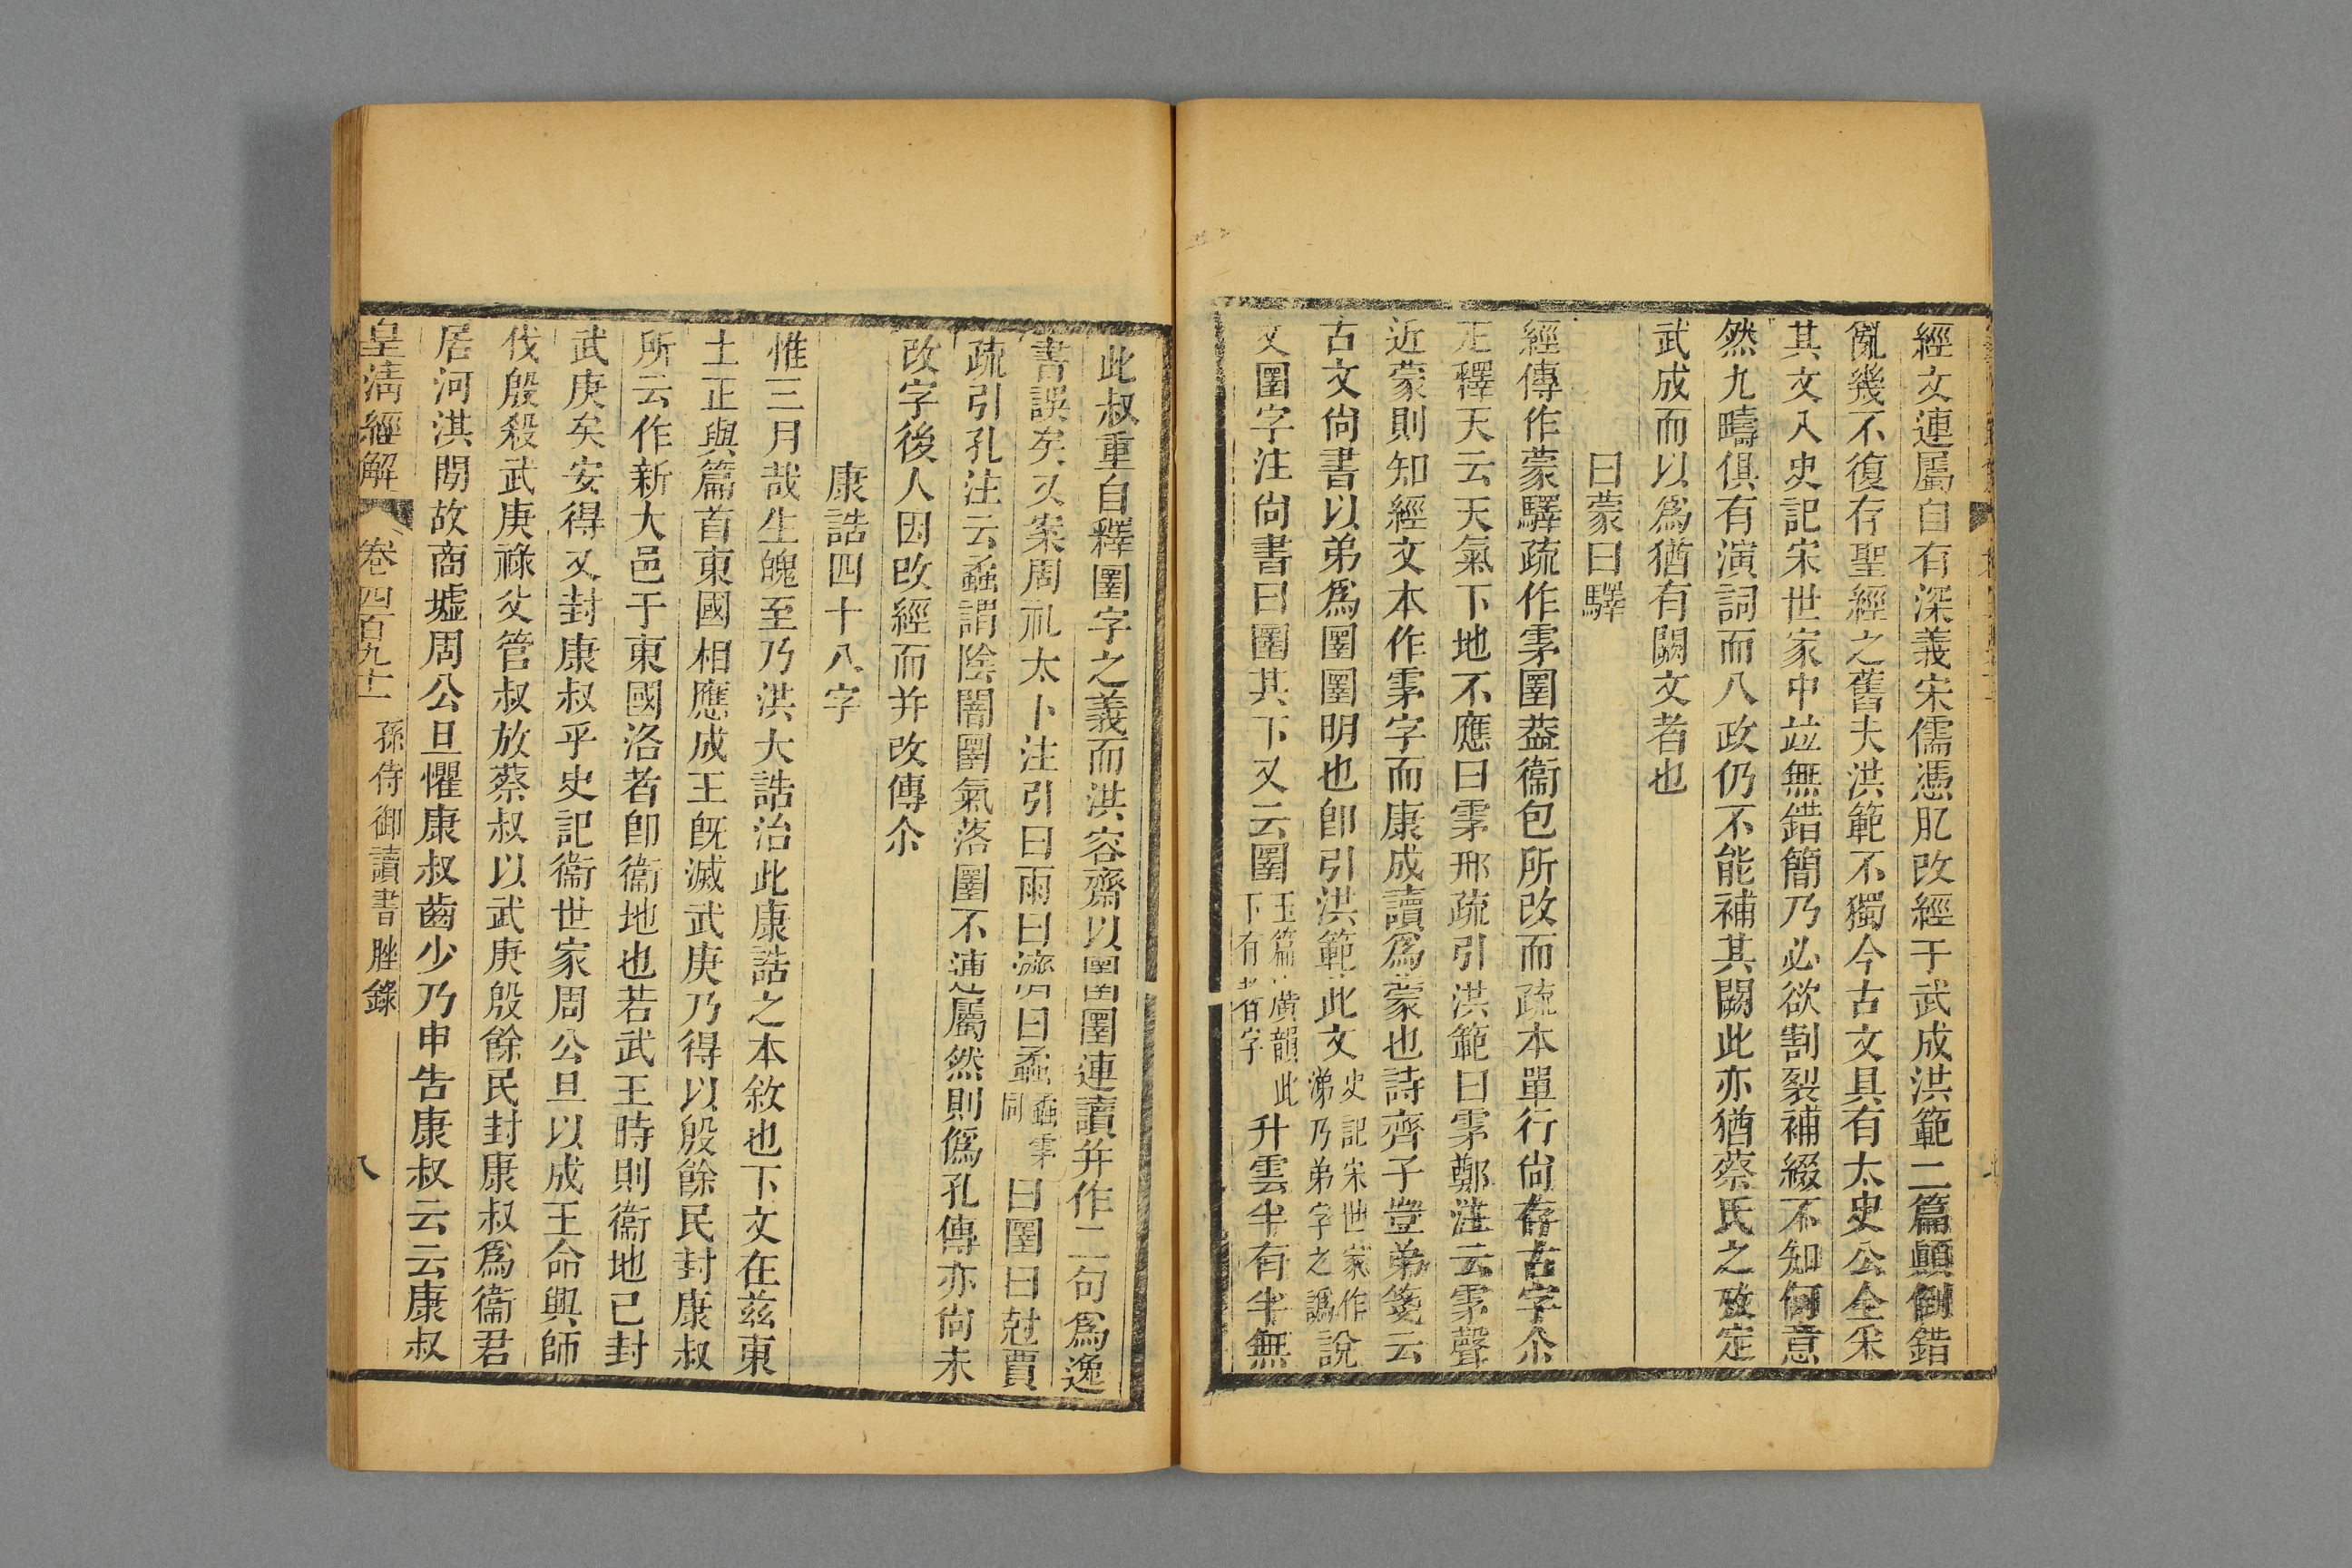 經文連屬自有深義宋儒憑肊改經于武成洪範二篇顛倒錯
亂幾不復存聖經之舊夫洪範不獨今古文具有太史公全采
其文入史記宋世家中竝無錯簡乃必欲割裂補綴不知何意
然九疇俱有演詞而八政仍不能補其闕此亦猶蔡氏之攷定
武成而以爲猶有闕文者也
曰蒙曰驛
經傳作蒙驛疏作雺圛葢衞包所改而疏本單行尙存古字尒
疋釋天云天氣下地不應曰雺邢疏引洪範曰雺鄭注云雺聲
近蒙則知經文本作雺字而康成讀爲蒙也詩齊子豈弟箋云
古文尙書以弟爲圛圛明也卽引洪範此文史記宋世家作涕乃弟字之譌說
文圛字注尙書曰圛其下又云圛玉篇廣韻此下有者字升雲半有半無
此叔重自釋圛字之義而洪容齋以圛圛連讀并作二句爲逸
書誤矣又案周礼太卜注引曰雨曰濟曰蟊蟊雺同曰圛曰尅賈
疏引孔注云蟊謂陰闇圛氣落圛不連屬然則僞孔傳亦尙未
改字後人因改經而并改傳尒
康誥四十八字
惟三月哉生魄至乃洪大誥治此康誥之本敘也下文在茲東
土正與篇首東國相應成王旣滅武庚乃得以殷餘民封康叔
所云作新大邑于東國洛者卽衞地也若武王時則衞地已封
武庚矣安得又封康叔乎史記衞世家周公旦以成王命興師
伐殷殺武庚祿父管叔放蔡叔以武庚殷餘民封康叔爲衞君
居河淇閒故商墟周公旦懼康叔齒少乃申告康叔云云康叔
皇淸經解 卷四百九十二 孫侍御讀書脞錄 八